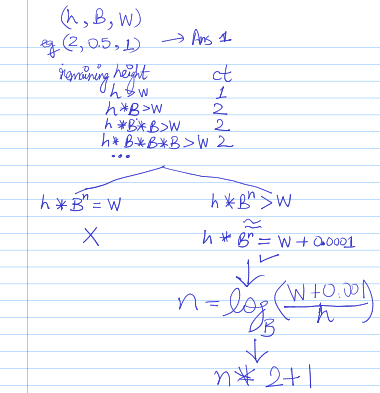 (h, B, W)
eg (2, 0.5, 1) → Ans 1
remaining height ct
h > W 1
h * B > W 2
h * B * B > W 2
h * B * B * B > W 2
...
h * Bⁿ = W h * Bⁿ > W
X ≈
h * Bⁿ = W + 0.0001
✓
n = log_B ((W + 0.001) / h)
n * 2 + 1